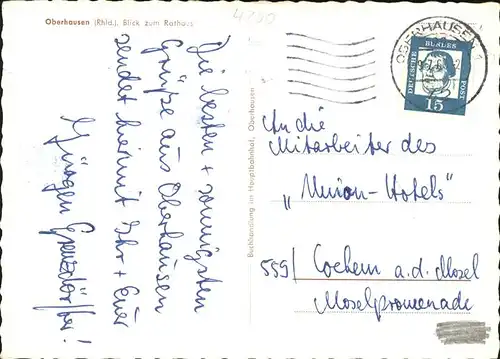 Oberhausen (Rhld.), Blick zum Rathaus
Die besten + sonnigsten
Grüße aus Oberhausen
sendet hiermit Ihr + Euer
Jürgen
Buchhandlung im Hauptbahnhof, Oberhausen
OBERHAUSEN
DEUTSCHE BUNDESPOST
15
An die
Mitarbeiter des
„Union-Hotels"
559/ Cochem a. d. Mosel
Moselpromenade